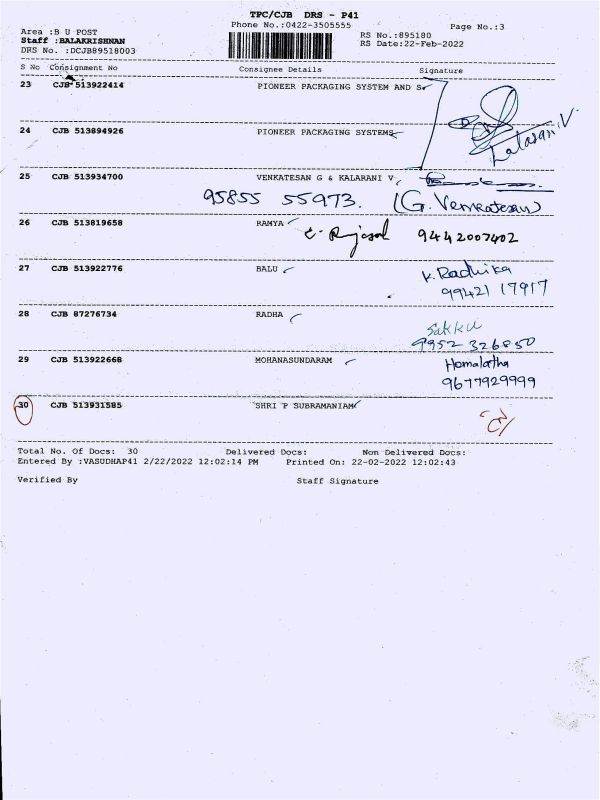 TPC/CJB DRS - P41
Phone No.:0422-3505555
Page No.:3
Area :B U POST
Staff :BALAKRISHNAN
DRS No. :DCJB89518003
RS No.:895180
RS Date:22-Feb-2022
S No Consignment No Consignee Details Signature
23 CJB 513922414 PIONEER PACKAGING SYSTEM AND S
24 CJB 513894926 PIONEER PACKAGING SYSTEMS
Lalarani.V.
25 CJB 513934700 VENKATESAN G & KALARANI V
95855 55973. (G. Venkatesan)
26 CJB 513819658 RAMYA
9442007402
27 CJB 513922776 BALU K. Radhika
99421 17917
28 CJB 87276734 RADHA
Sakku
9952 326850
29 CJB 513922668 MOHANASUNDARAM Hemalatha
9677929999
30 CJB 513931585 SHRI P SUBRAMANIAM
Total No. Of Docs: 30 Delivered Docs: Non Delivered Docs:
Entered By :VASUDHAP41 2/22/2022 12:02:14 PM Printed On: 22-02-2022 12:02:43
Verified By Staff Signature